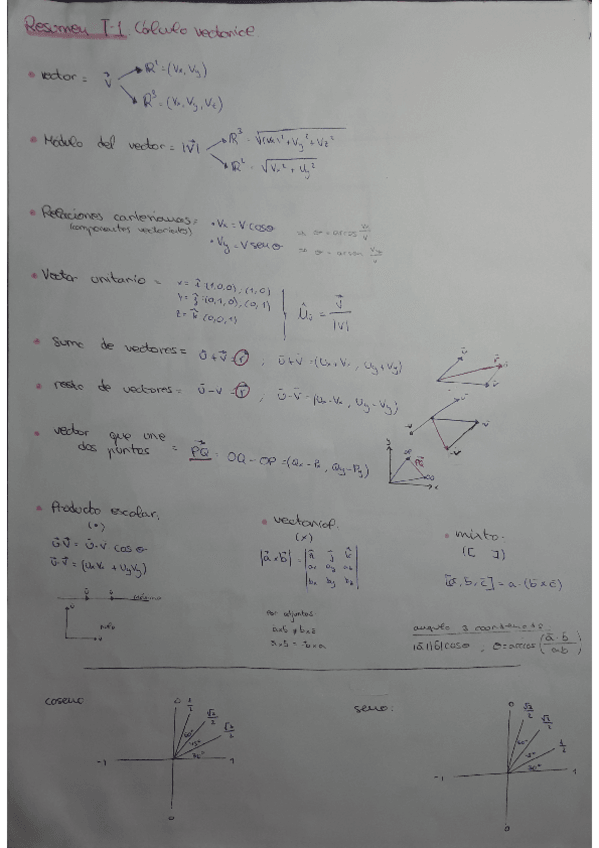 Resumen T-1 Cálculo vectorial.
• vector = v⃗ → R² = (Vx, Vy)
→ R³ = (Vx, Vy, Vz)
• Módulo del vector = |V⃗| → R³ = √(Vx)²+Vy²+Vz²
→ R² = √Vx²+Vy²
• Relaciones cartesianas = • Vx = V cosθ
(componentes vectoriales) • Vy = V senθ
• Vector unitario = x = i⃗ (1,0,0), (1,0)
y = j⃗ (0,1,0), (0,1)
z = k⃗ (0,0,1)
û = v⃗ / |v|
• Suma de vectores = ū+v⃗ = r⃗ ; ū+v̄ = (Ux+Vx, Uy+Vy)
• resta de vectores = ū-v = r⃗ ; ū-v̄ = (Ux-Vx, Uy-Vy)
• vector que une
dos puntos = PQ⃗ = OQ - OP = (Qx-Px, Qy-Py)
• Producto escalar,
(•)
ū·v̄ = ū·v cosθ
ū·v̄ = (UxVx + UyVy)
• vectorial.
(×)
|ā×b̄| = | i j k |
ax ay az
bx by bz
por adjuntos
a×b ≠ b×a
a×b = -b×a
• mixto.
([ ])
[ā, b̄, c̄] = a·(b̄×c)
|ā||b̄|cosθ ; θ=arccos(ā·b̄ / ab)
coseno
0
1/2
√2/2
√3/2
60°
45°
30°
-1
1
0
seno:
0
√3/2
√2/2
1/2
60°
45°
30°
-1
1
0